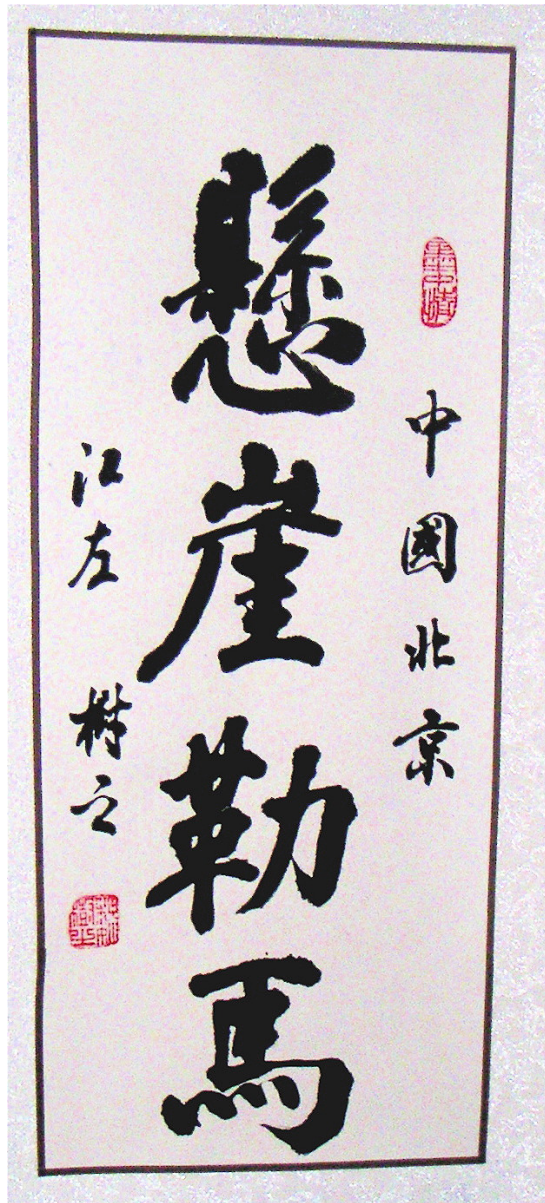 中國北京
懸崖勒馬
江左 樹之